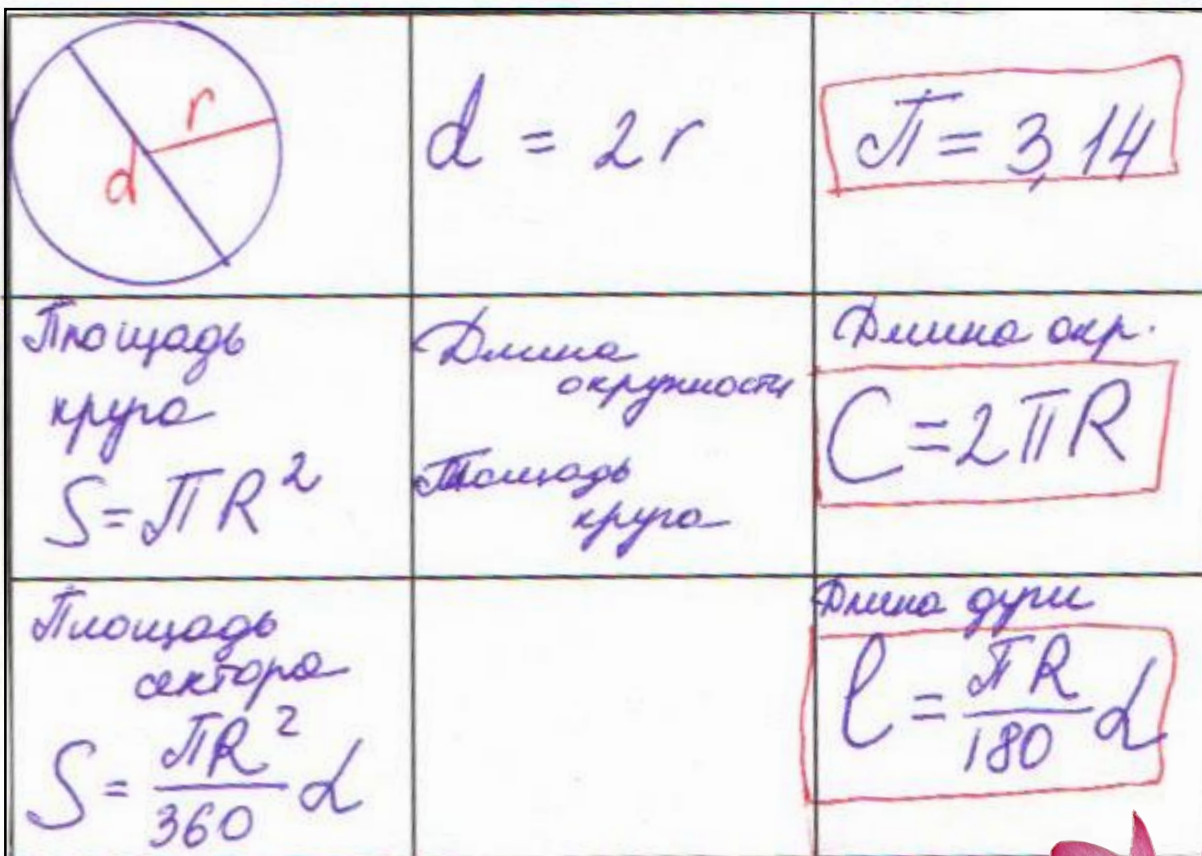 r
d
d = 2r
π = 3,14
Площадь
круга
S = πR²
Длина
окружности
Площадь
круга
Длина окр.
C = 2πR
Площадь
сектора
S = πR²/360 α
Длина дуги
l = πR/180 α